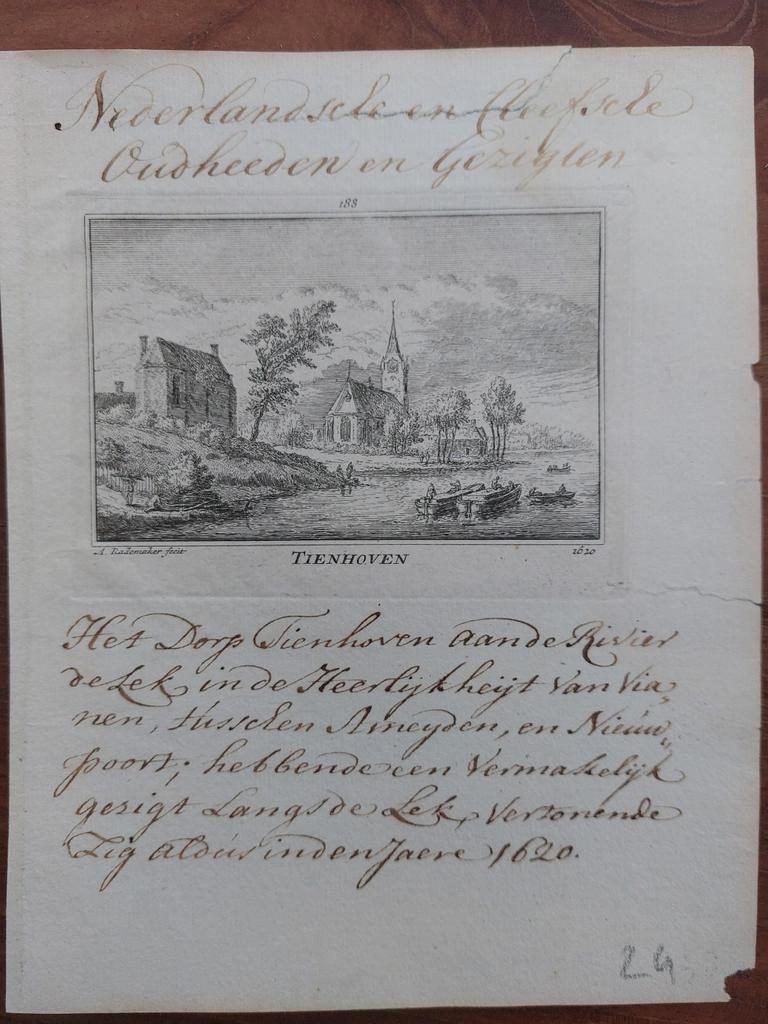 Nederlandsche en Cleefsche
Oudheeden en Gezigten
188
A. Rademaker fecit
TIENHOVEN
1620
Het Dorp Tienhoven aan de Rivier
de Lek, in de Heerlijkheijt van Via„
nen, tússchen Ameyden, en Nieúw„
poort; hebbende een Vermakelijk
gezigt Langs de Lek, Vertonende
Zig aldús in den Jaere 1620.
24